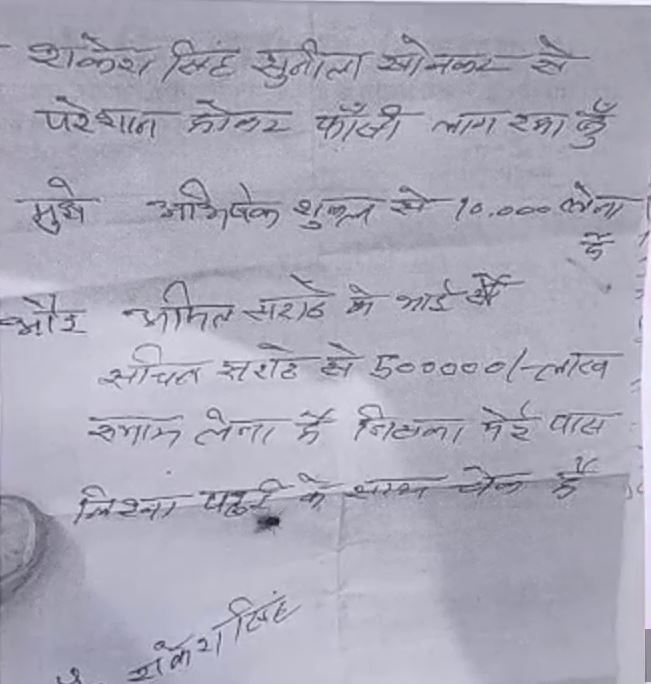 राकेश सिंह सुनीता सोनकर से
परेशान होकर फाँसी लगा रहा हूँ
मुझे अभिषेक शुक्ल से 10.000 लेना
है
और अमित सराठे के भाई
सचिन सराठे से 500000/- लाख
लेना है जिसका मेरे पास
लिखा पढ़ी के साथ चेक है
राकेश सिंह